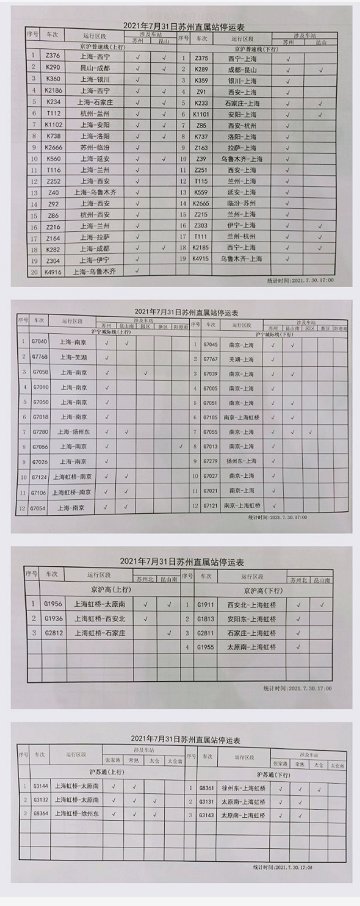 2021年7月31日苏州直属站停运表
序号 车次 运行区段 涉及车站 序号 车次 运行区段 涉及车站
苏州 昆山 苏州 昆山
京沪普速线(上行) 京沪普速线(下行)
1 Z376 上海-西宁 √ √ 1 Z375 西宁-上海 √
2 K290 昆山-成都 √ √ 2 K289 成都-昆山 √ √
3 K360 上海-银川 √ 3 K359 银川-上海 √
4 K2186 上海-西宁 √ √ 4 Z91 西安-上海 √
5 K234 上海-石家庄 √ √ 5 K233 石家庄-上海 √ √
6 T112 杭州-兰州 √ √ 6 K1101 安阳-上海 √ √
7 K1102 上海-安阳 √ √ 7 Z85 西安-杭州 √
8 K738 上海-洛阳 √ √ 8 K737 洛阳-上海 √
9 K2666 苏州-临汾 √ 9 Z163 拉萨-上海 √
10 K560 上海-延安 √ √ 10 Z39 乌鲁木齐-上海 √
11 T116 上海-兰州 √ 11 Z251 西安-上海 √
12 Z252 上海-西安 √ 12 T115 兰州-上海 √
13 Z40 上海-乌鲁木齐 √ 13 K559 延安-上海 √
14 Z92 上海-西安 √ 14 K2665 临汾-苏州 √
15 Z86 杭州-西安 √ 15 Z215 兰州-上海 √
16 Z216 上海-兰州 √ 16 Z303 伊宁-上海 √ √
17 Z164 上海-拉萨 √ 17 T111 兰州-杭州 √ √
18 K282 上海-成都 √ √ 18 K2185 西宁-上海 √ √
19 Z304 上海-伊宁 √ 19 K4915 乌鲁木齐-上海 √
20 K4916 上海-乌鲁木齐 √
统计时间:2021.7.30.17:00
2021年7月31日苏州直属站停运表
序号 车次 运行区段 涉及车站 序号 车次 运行区段 涉及车站
苏州 昆山南 园区 新区 苏州 昆山南 园区 新区
沪宁城际线(上行) 沪宁城际线(下行)
1 G7040 上海-南京 √ √ 1 G7045 南京-上海 √ √
2 G7768 上海-芜湖 √ 2 G7767 芜湖-上海 √
3 G7058 上海-南京 √ √ 3 G7039 南京-上海 √ √
4 上海-南京 √ 4 南京-上海 √
5 上海-南京 √ 5 G7051 南京-上海 √ √
6 G7018 上海-南京 √ 6 G7105 南京-上海虹桥 √ √
7 G7280 上海-扬州东 √ √ 7 G7055 南京-上海 √ √ √
8 G7066 上海-南京 √ √ 8 G7013 南京-上海 √
9 G7026 上海-南京 √ 9 G7279 扬州东-上海 √
10 G7124 上海虹桥-南京 √ √ 10 G7027 南京-上海 √
11 G7106 上海虹桥-南京 √ √ 11 G7021 南京-上海 √
12 G7054 上海-南京 √ √ 12 G7121 南京-上海虹桥 √
统计时间:2021.7.30.17:00
2021年7月31日苏州直属站停运表
序号 车次 运行区段 涉及车站 序号 车次 运行区段 涉及车站
苏州北 昆山南 苏州北 昆山南
京沪高(上行) 京沪高(下行)
1 G1956 上海虹桥-太原南 √ √ 1 G1911 西安北-上海虹桥 √ √
2 G1936 上海虹桥-西安北 √ 2 G1813 安阳东-上海虹桥 √
3 G2812 上海虹桥-石家庄 √ 3 G2811 石家庄-上海虹桥 √
4 G1955 太原南-上海虹桥 √
统计时间:2021.7.30.17:00
2021年7月31日苏州直属站停运表
序号 车次 运行区段 涉及车站 序号 车次 运行区段 涉及车站
张家港 常熟 太仓 太仓南 张家港 常熟 太仓 太仓南
沪苏通(上行) 沪苏通(下行)
1 G3144 上海虹桥-太原南 √ √ 1 G8361 徐州东-上海虹桥 √ √ √
2 G3132 上海虹桥-太原南 √ √ √ 2 G3131 太原南-上海虹桥 √ √
3 G8364 上海虹桥-徐州东 √ √ √ 3 G3143 太原南-上海虹桥 √ √
统计时间:2021.7.30.17:00